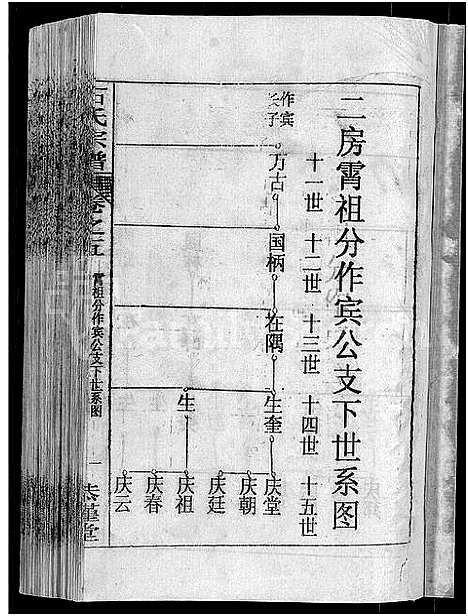 二房霄祖分作宾公支下世系图
十一世 十二世 十三世 十四世 十五世
作宾
长子
万古
国柄
在隅
生奎
生
庆堂
庆朝
庆廷
庆祖
庆春
庆云
石氏宗谱
卷之五
霄祖分作宾公支下世系图
一